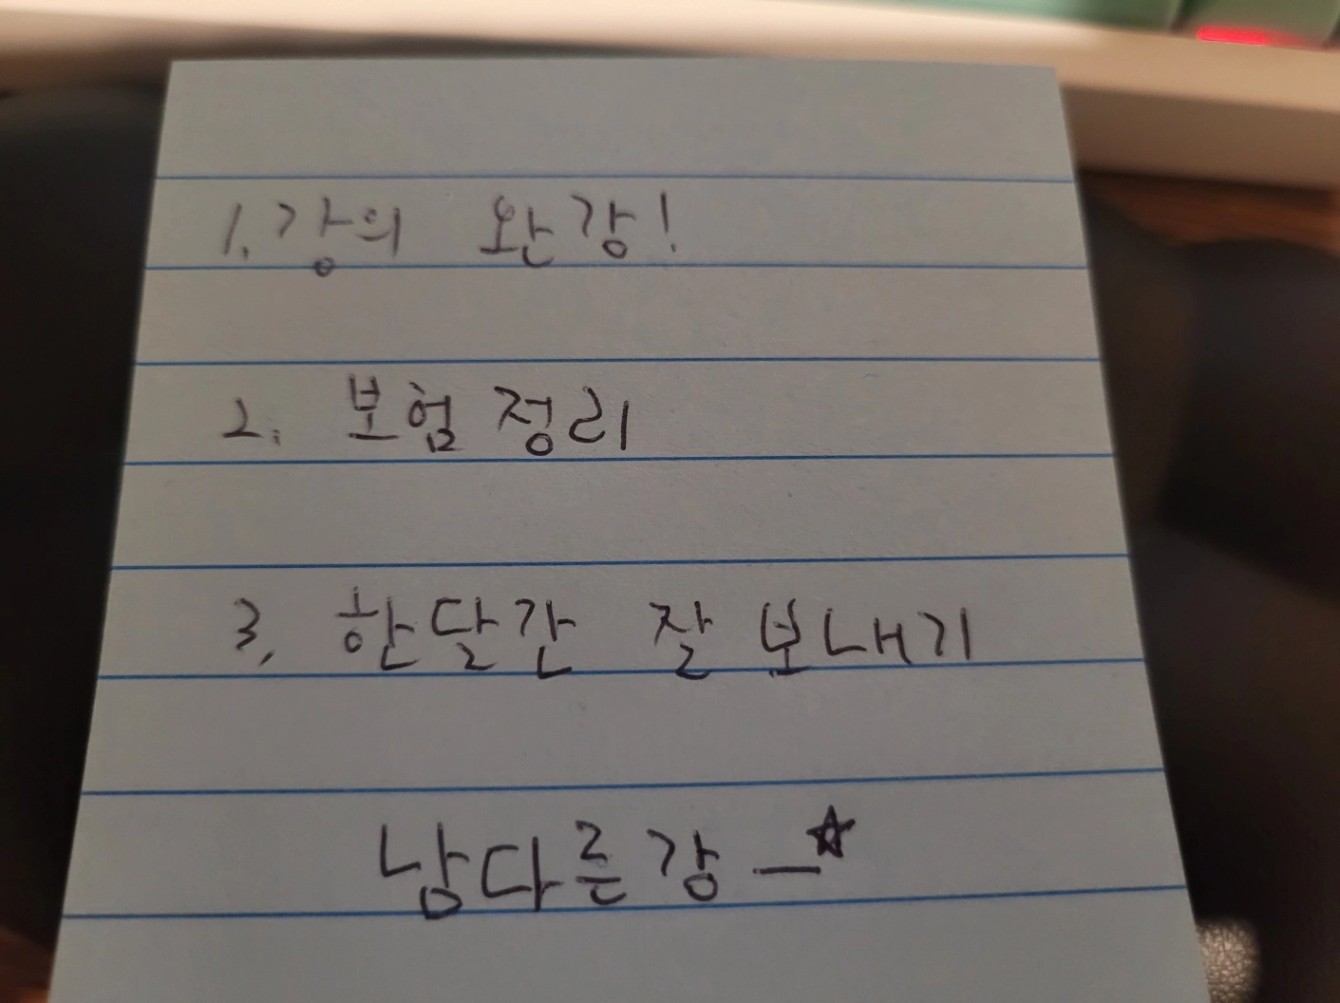 1. 강의 완강!
2. 보험정리
3. 한달간 잘 보내기
남다른강 —☆